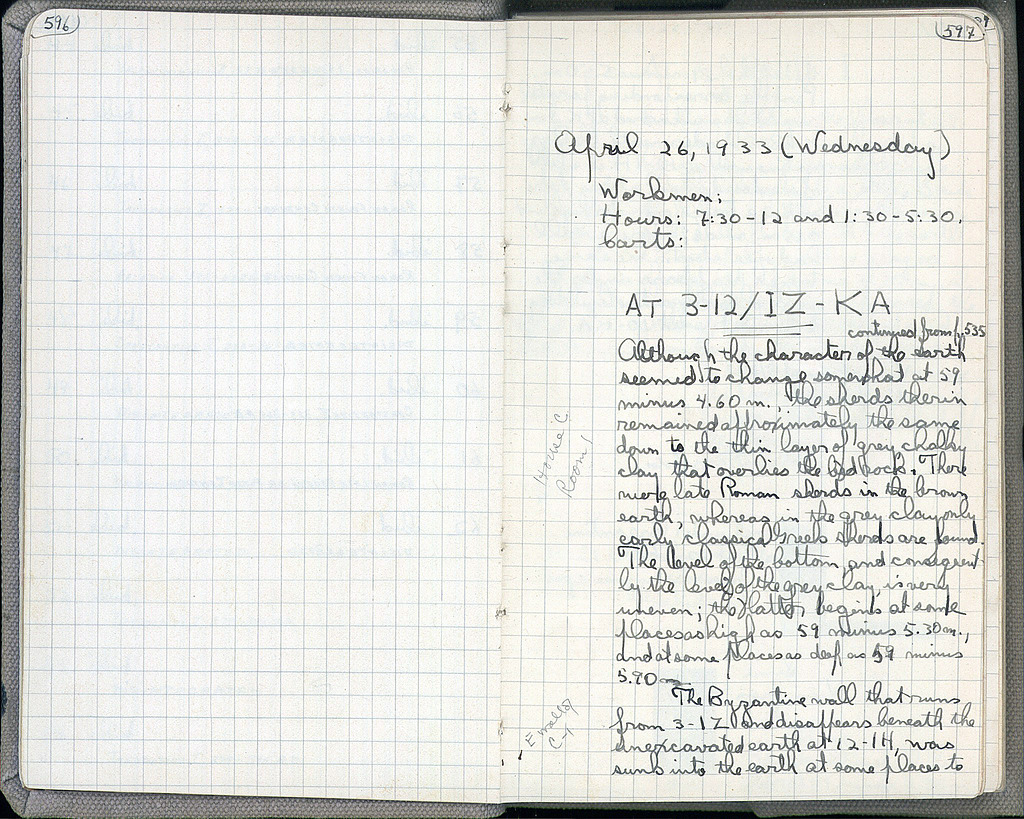 596
597
April 26, 1933 (Wednesday)
Workmen:
Hours: 7:30-12 and 1:30-5:30.
Carts:
AT 3-12/IZ-KA
continued from p. 535
Although the character of the earth
seemed to change somewhat at 59
minus 4.60 m., the sherds therin
remained approximately the same
down to the thin layer of grey chalky
clay that overlies the bed rock. There
were late Roman sherds in the brown
earth, whereas in the grey clay only
early classical Greek sherds are found.
The level of the bottom, and consequent-
ly the level of the grey clay, is very
uneven; the latter begins at some
places as high as 59 minus 5.30 m.,
and at some places as deep as 59 minus
5.90 m
The Byzantine wall that runs
from 3-IZ and disappears beneath the
unexcavated earth at 12-IH, was
sunk into the earth at some places to
House C
Room 1
E wall of
C-1